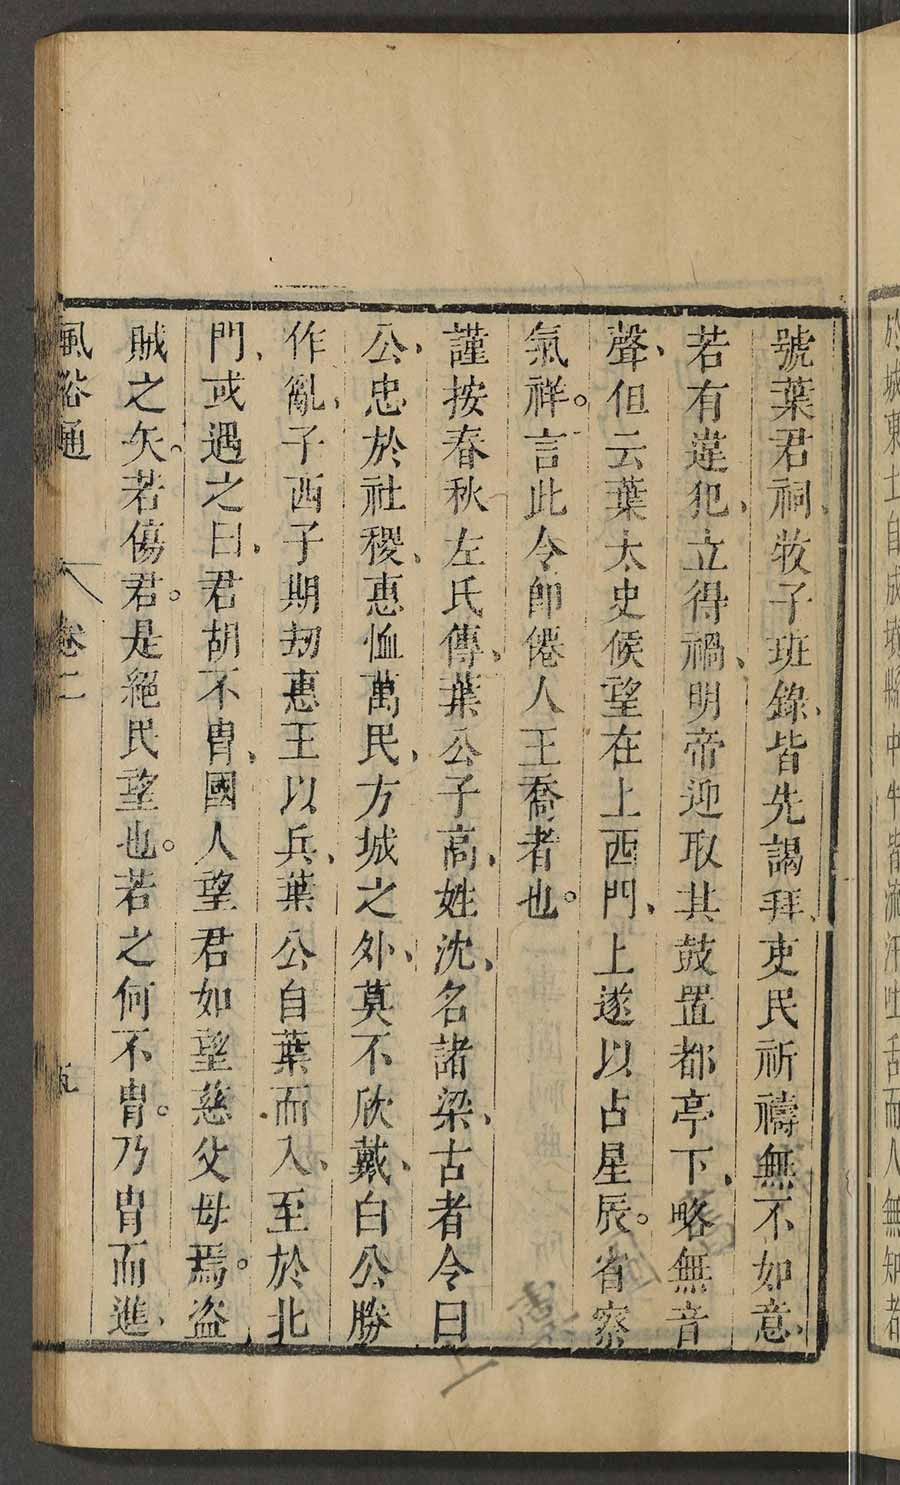 於城東土自成墳縣中牛皆流汗吐舌而人無知者
號葉君祠、牧守班錄、皆先謁拜、吏民祈禱無不如意、
若有違犯、立得禍、明帝迎取其鼓置都亭下、略無音
聲、但云葉太史候望在上西門、上遂以占星辰。省察
氣祥。言此令卽僊人王喬者也。
謹按春秋左氏傳、葉公子高、姓沈、名諸梁、古者令曰
公、忠於社稷、惠恤萬民、方城之外、莫不欣戴、白公勝
作亂、子西子期刼惠王以兵、葉公自葉而入、至於北
門、或遇之曰、君胡不胄、國人望君如望慈父母焉。盜
賊之矢。若傷君。是絕民望也。若之何不胄。乃胄而進、
風俗通 卷二 五